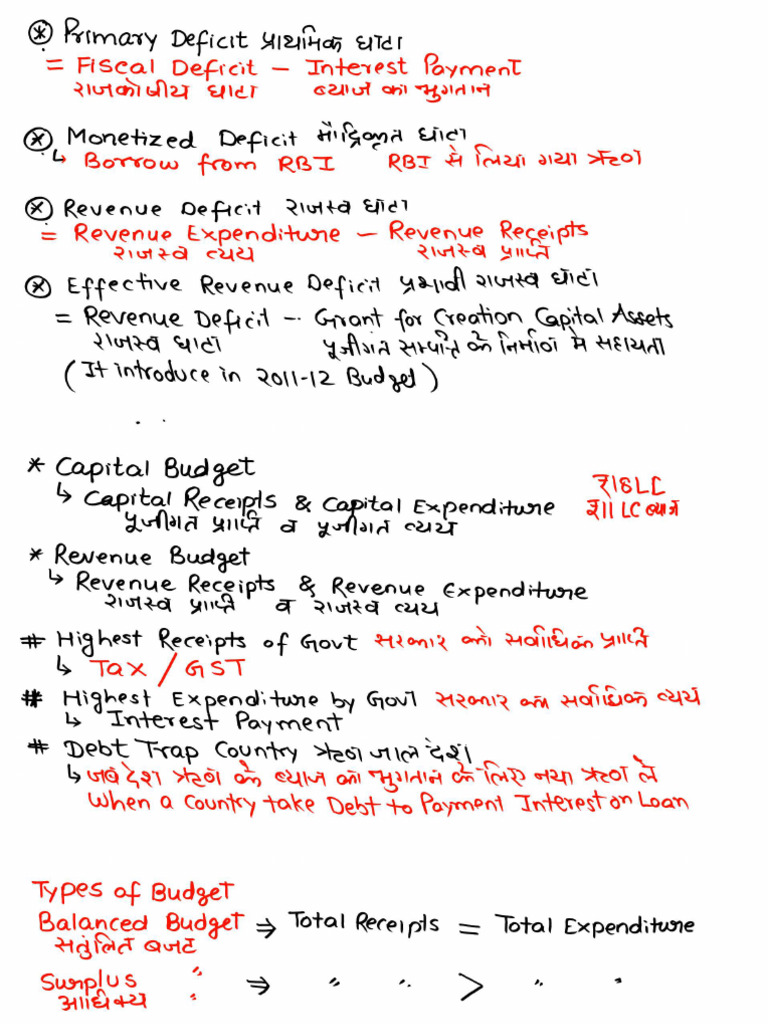 * Primary Deficit प्राथमिक घाटा
= Fiscal Deficit – Interest Payment
राजकोषीय घाटा ब्याज का भुगतान
* Monetized Deficit मौद्रिकृत घाटा
↳ Borrow from RBI RBI से लिया गया ऋण
* Revenue Deficit राजस्व घाटा
= Revenue Expenditure – Revenue Receipts
राजस्व व्यय राजस्व प्राप्ति
* Effective Revenue Deficit प्रभावी राजस्व घाटा
= Revenue Deficit – Grant for Creation Capital Assets
राजस्व घाटा पूजीगत सम्पत्ति के निर्माण मे सहायता
(It introduce in 2011-12 Budget)
* Capital Budget
↳ Capital Receipts & Capital Expenditure ₹18LC
पूजीगत प्राप्ति व पूजीगत व्यय ₹11LC ब्याज
* Revenue Budget
↳ Revenue Receipts & Revenue Expenditure
राजस्व प्राप्ति व राजस्व व्यय
# Highest Receipts of Govt सरकार को सर्वाधिक प्राप्ति
↳ Tax / GST
# Highest Expenditure by Govt सरकार का सर्वाधिक व्यय
↳ Interest Payment
# Debt Trap Country ऋण जाल देश
↳ जब देश ऋण के ब्याज का भुगतान के लिए नया ऋण ले
When a Country take Debt to Payment Interest on Loan
Types of Budget
Balanced Budget ⇒ Total Receipts = Total Expenditure
सतुंलित बजट
Surplus " ⇒ " " > " "
आधिक्य "